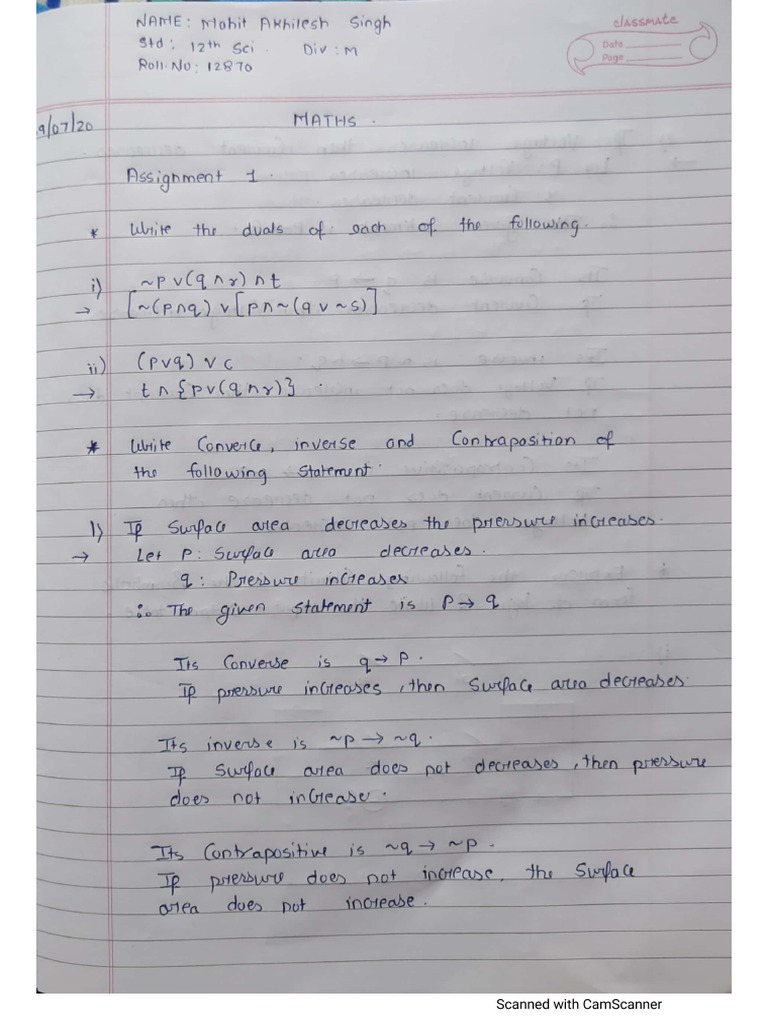 NAME: Mohit Akhilesh Singh
Std: 12th Sci. Div: M
Roll.No: 12870
classmate
Date
Page
9/07/20
MATHS.
Assignment 1.
* Write the duals of each of the following.
i) ~p∨(q∧r)∧t
→ [~(p∧q)∨[p∧~(q∨~s)]
ii) (p∨q)∨c
→ t∧{p∨(q∧r)}.
* Write Converce, inverse and Contraposition of
the following statement.
1) If Surface area decreases the pressure increases.
→ Let P: Surface area decreases.
q: Pressure increases
∴ The given statement is P→q
Its Converse is q→p.
If pressure increases, then Surface area decreases.
Its inverse is ~p→~q.
If Surface area does not decreases, then pressure
does not increase.
Its Contrapositive is ~q→~p.
If pressure does not increase, the Surface
area does not increase.
Scanned with CamScanner